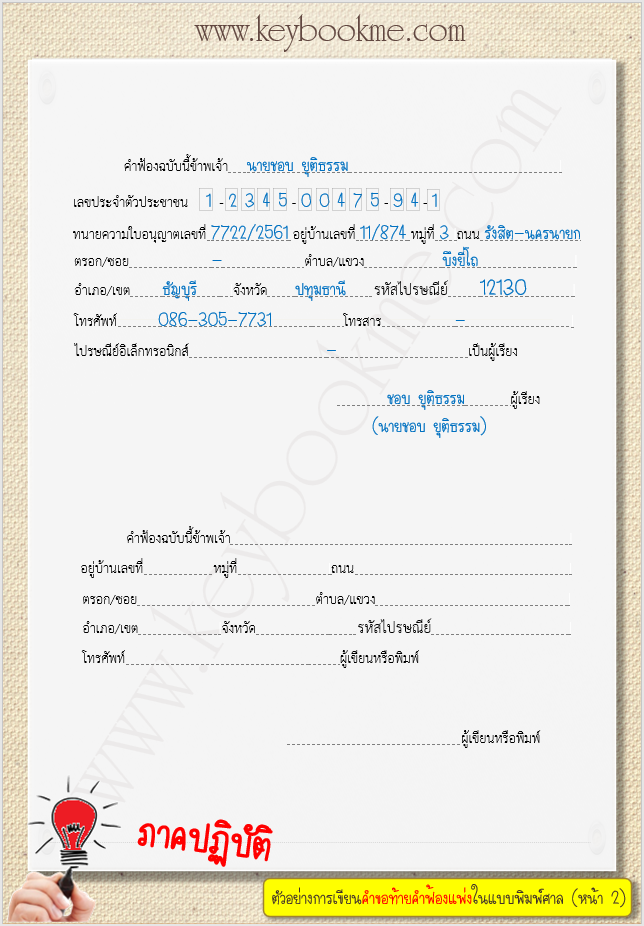 www.keybookme.com
คำฟ้องฉบับนี้ข้าพเจ้า นายชอบ ยุติธรรม
เลขประจำตัวประชาชน 1-2345-00475-94-1
ทนายความใบอนุญาตเลขที่ 7722/2561 อยู่บ้านเลขที่ 11/874 หมู่ที่ 3 ถนน รังสิต-นครนายก
ตรอก/ซอย - ตำบล/แขวง บึงยี่โถ
อำเภอ/เขต ธัญบุรี จังหวัด ปทุมธานี รหัสไปรษณีย์ 12130
โทรศัพท์ 086-305-7731 โทรสาร -
ไปรษณีย์อิเล็กทรอนิกส์ - เป็นผู้เรียง
ชอบ ยุติธรรม ผู้เรียง
(นายชอบ ยุติธรรม)
คำฟ้องฉบับนี้ข้าพเจ้า
อยู่บ้านเลขที่ หมู่ที่ ถนน
ตรอก/ซอย ตำบล/แขวง
อำเภอ/เขต จังหวัด รหัสไปรษณีย์
โทรศัพท์ ผู้เขียนหรือพิมพ์
ผู้เขียนหรือพิมพ์
www.keybookme.com
ภาคปฏิบัติ
ตัวอย่างการเขียนคำขอท้ายคำฟ้องแพ่งในแบบพิมพ์ศาล (หน้า 2)